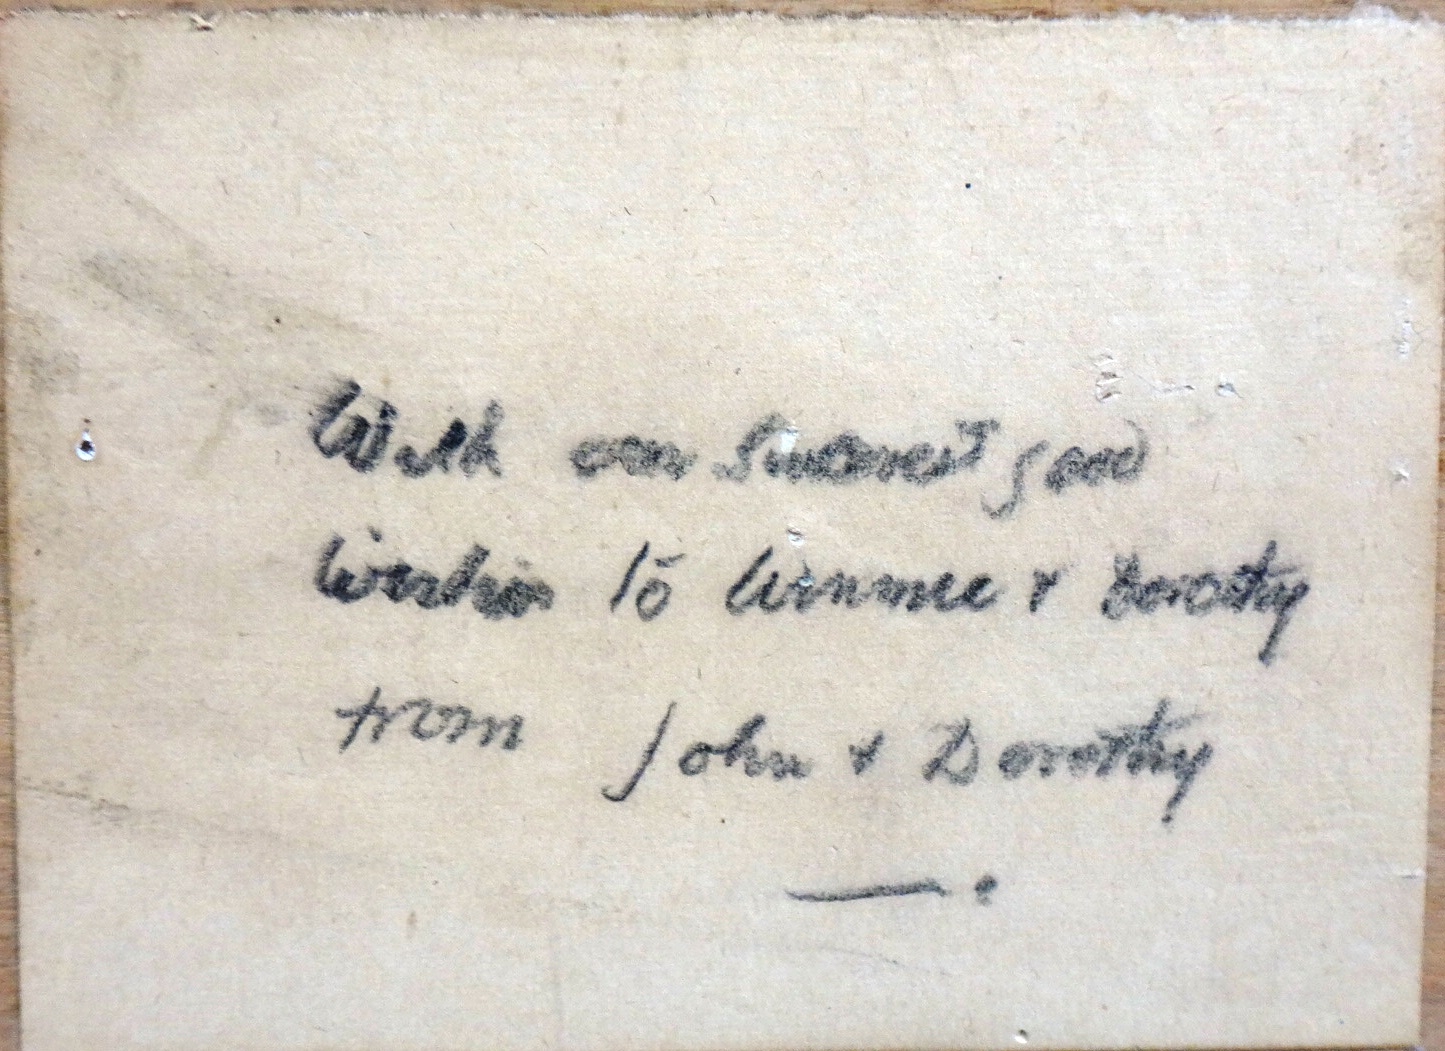 With our Sincerest good
Wishes to Winnie & Dorothy
from John & Dorothy